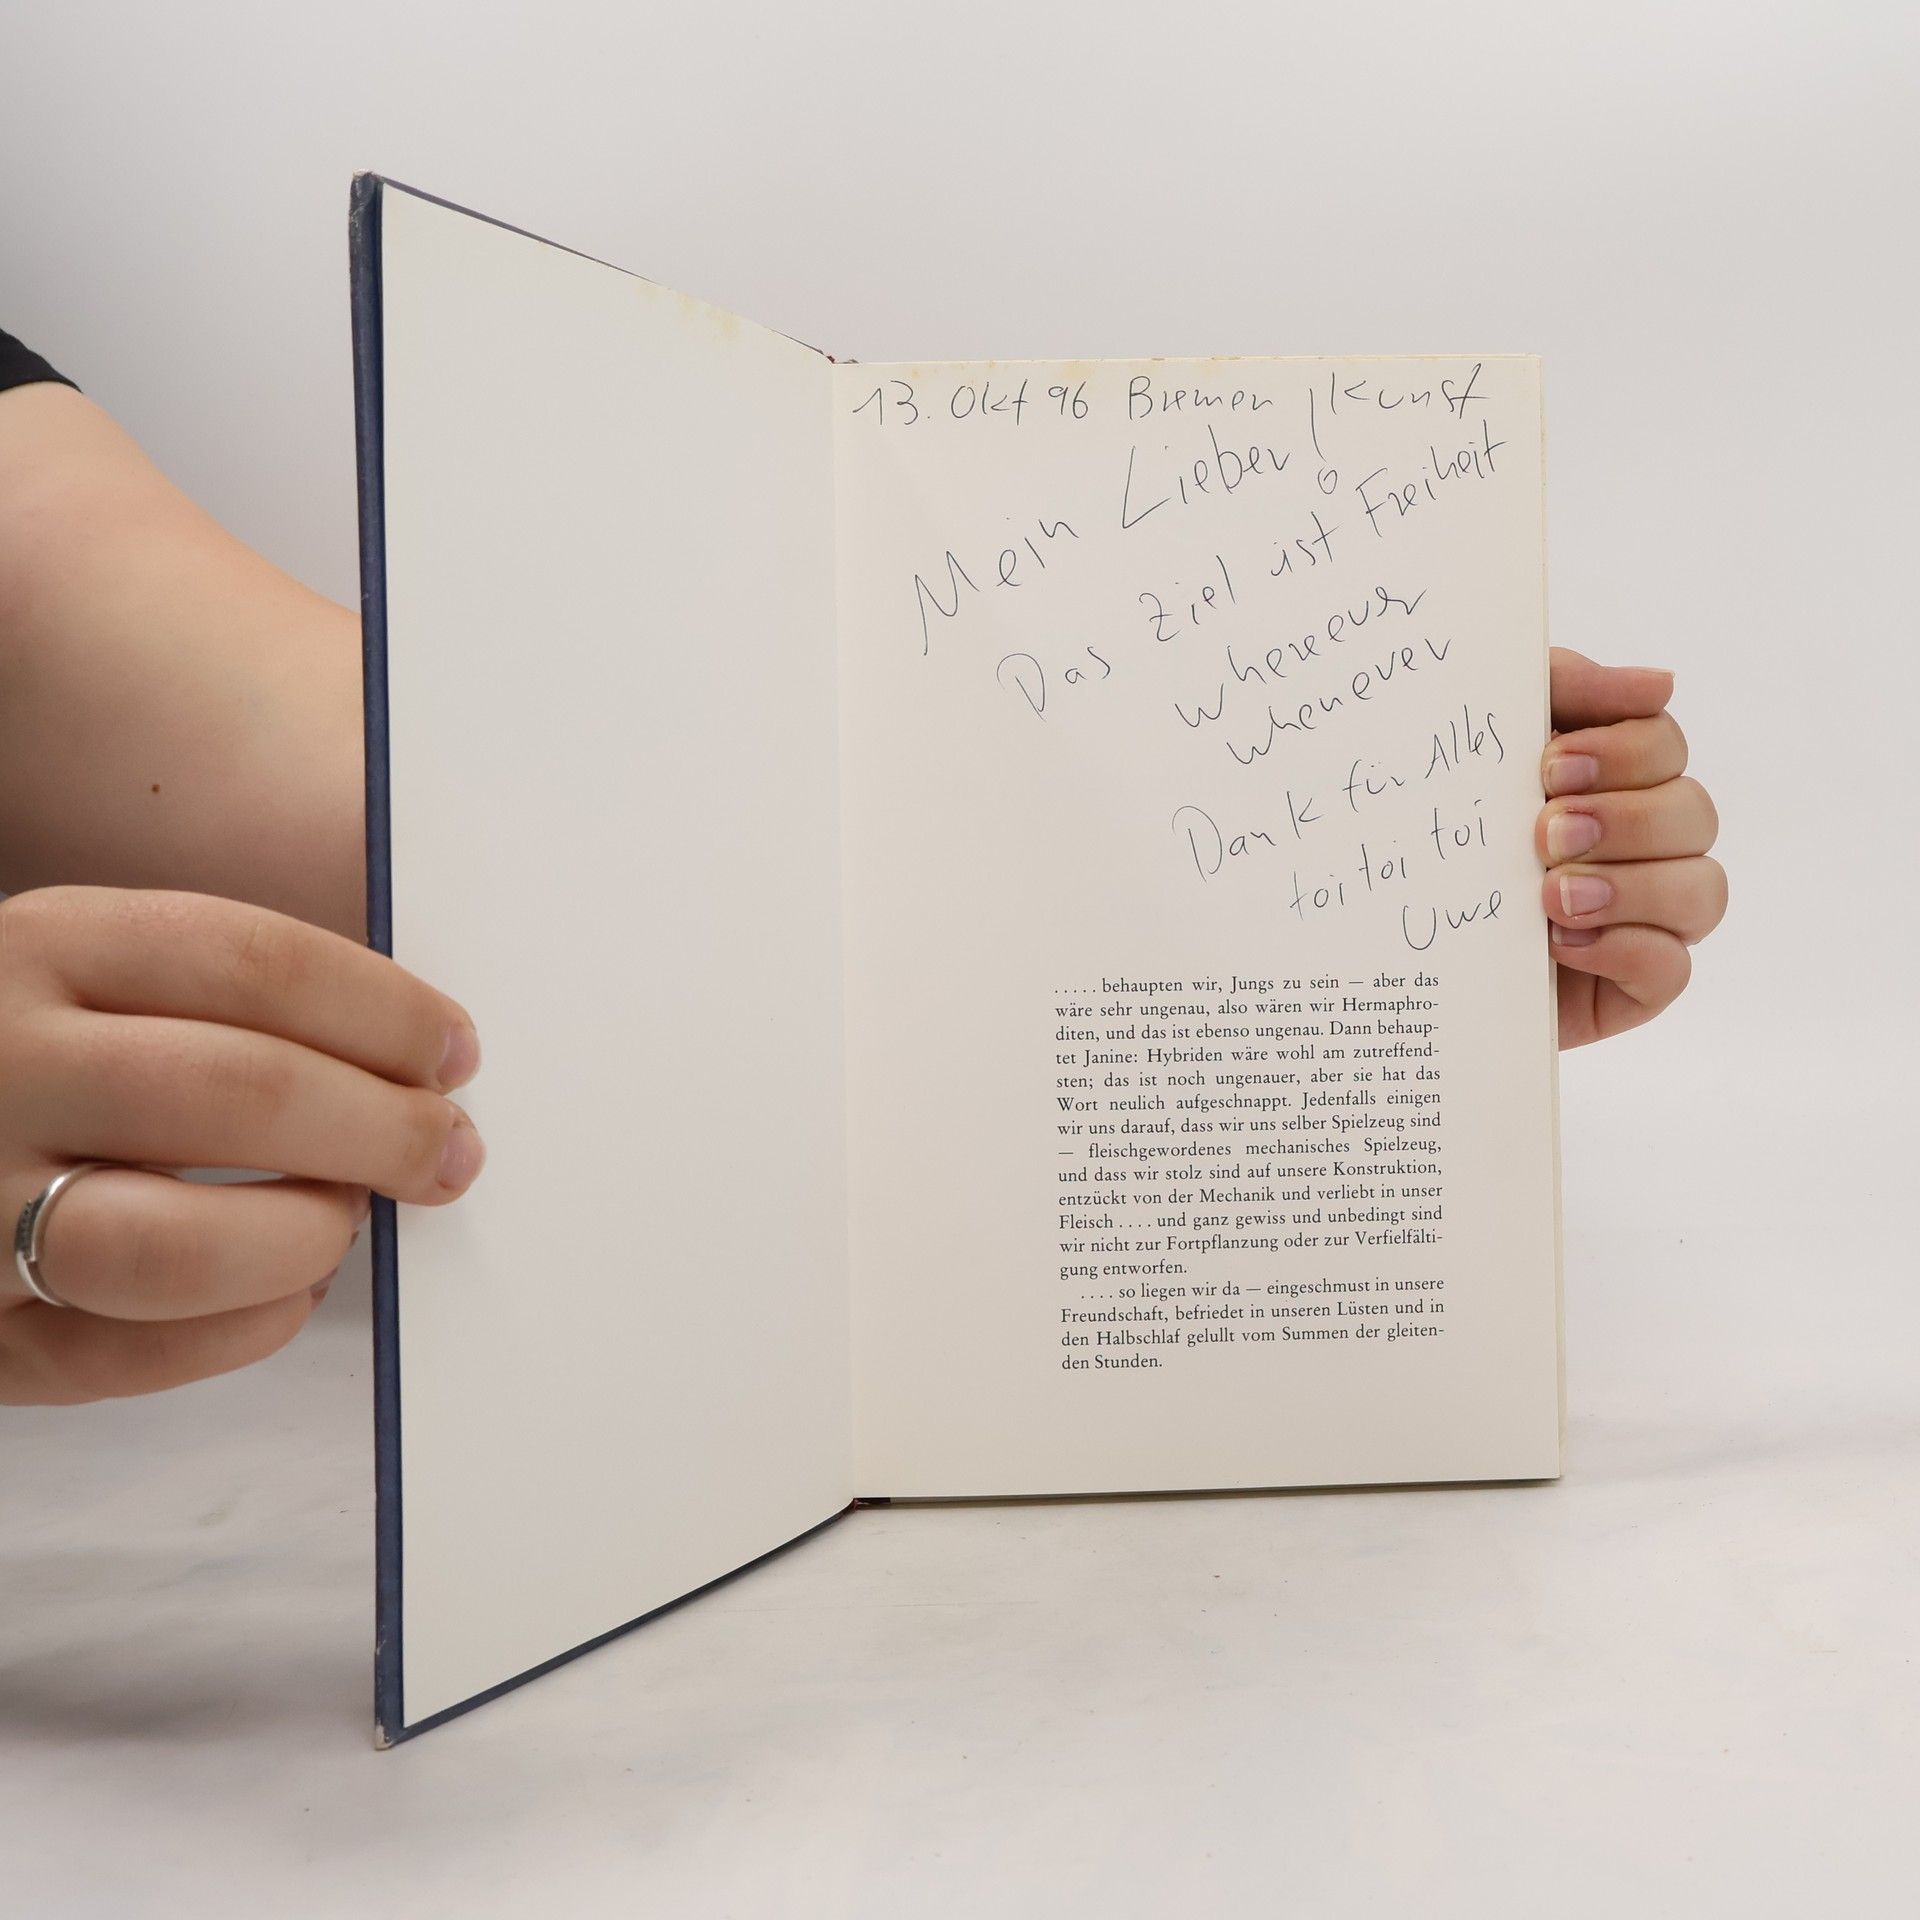 13. Okt 96 Bremen / Kunst
Mein Lieber!
Das Ziel ist Freiheit
whereever
whenever
Dank für Alles
toi toi toi
Uwe
..... behaupten wir, Jungs zu sein — aber das
wäre sehr ungenau, also wären wir Hermaphro-
diten, und das ist ebenso ungenau. Dann behaup-
tet Janine: Hybriden wäre wohl am zutreffend-
sten; das ist noch ungenauer, aber sie hat das
Wort neulich aufgeschnappt. Jedenfalls einigen
wir uns darauf, dass wir uns selber Spielzeug sind
— fleischgewordenes mechanisches Spielzeug,
und dass wir stolz sind auf unsere Konstruktion,
entzückt von der Mechanik und verliebt in unser
Fleisch .... und ganz gewiss und unbedingt sind
wir nicht zur Fortpflanzung oder zur Verfielfälti-
gung entworfen.
.... so liegen wir da — eingeschmust in unsere
Freundschaft, befriedet in unseren Lüsten und in
den Halbschlaf gelullt vom Summen der gleiten-
den Stunden.